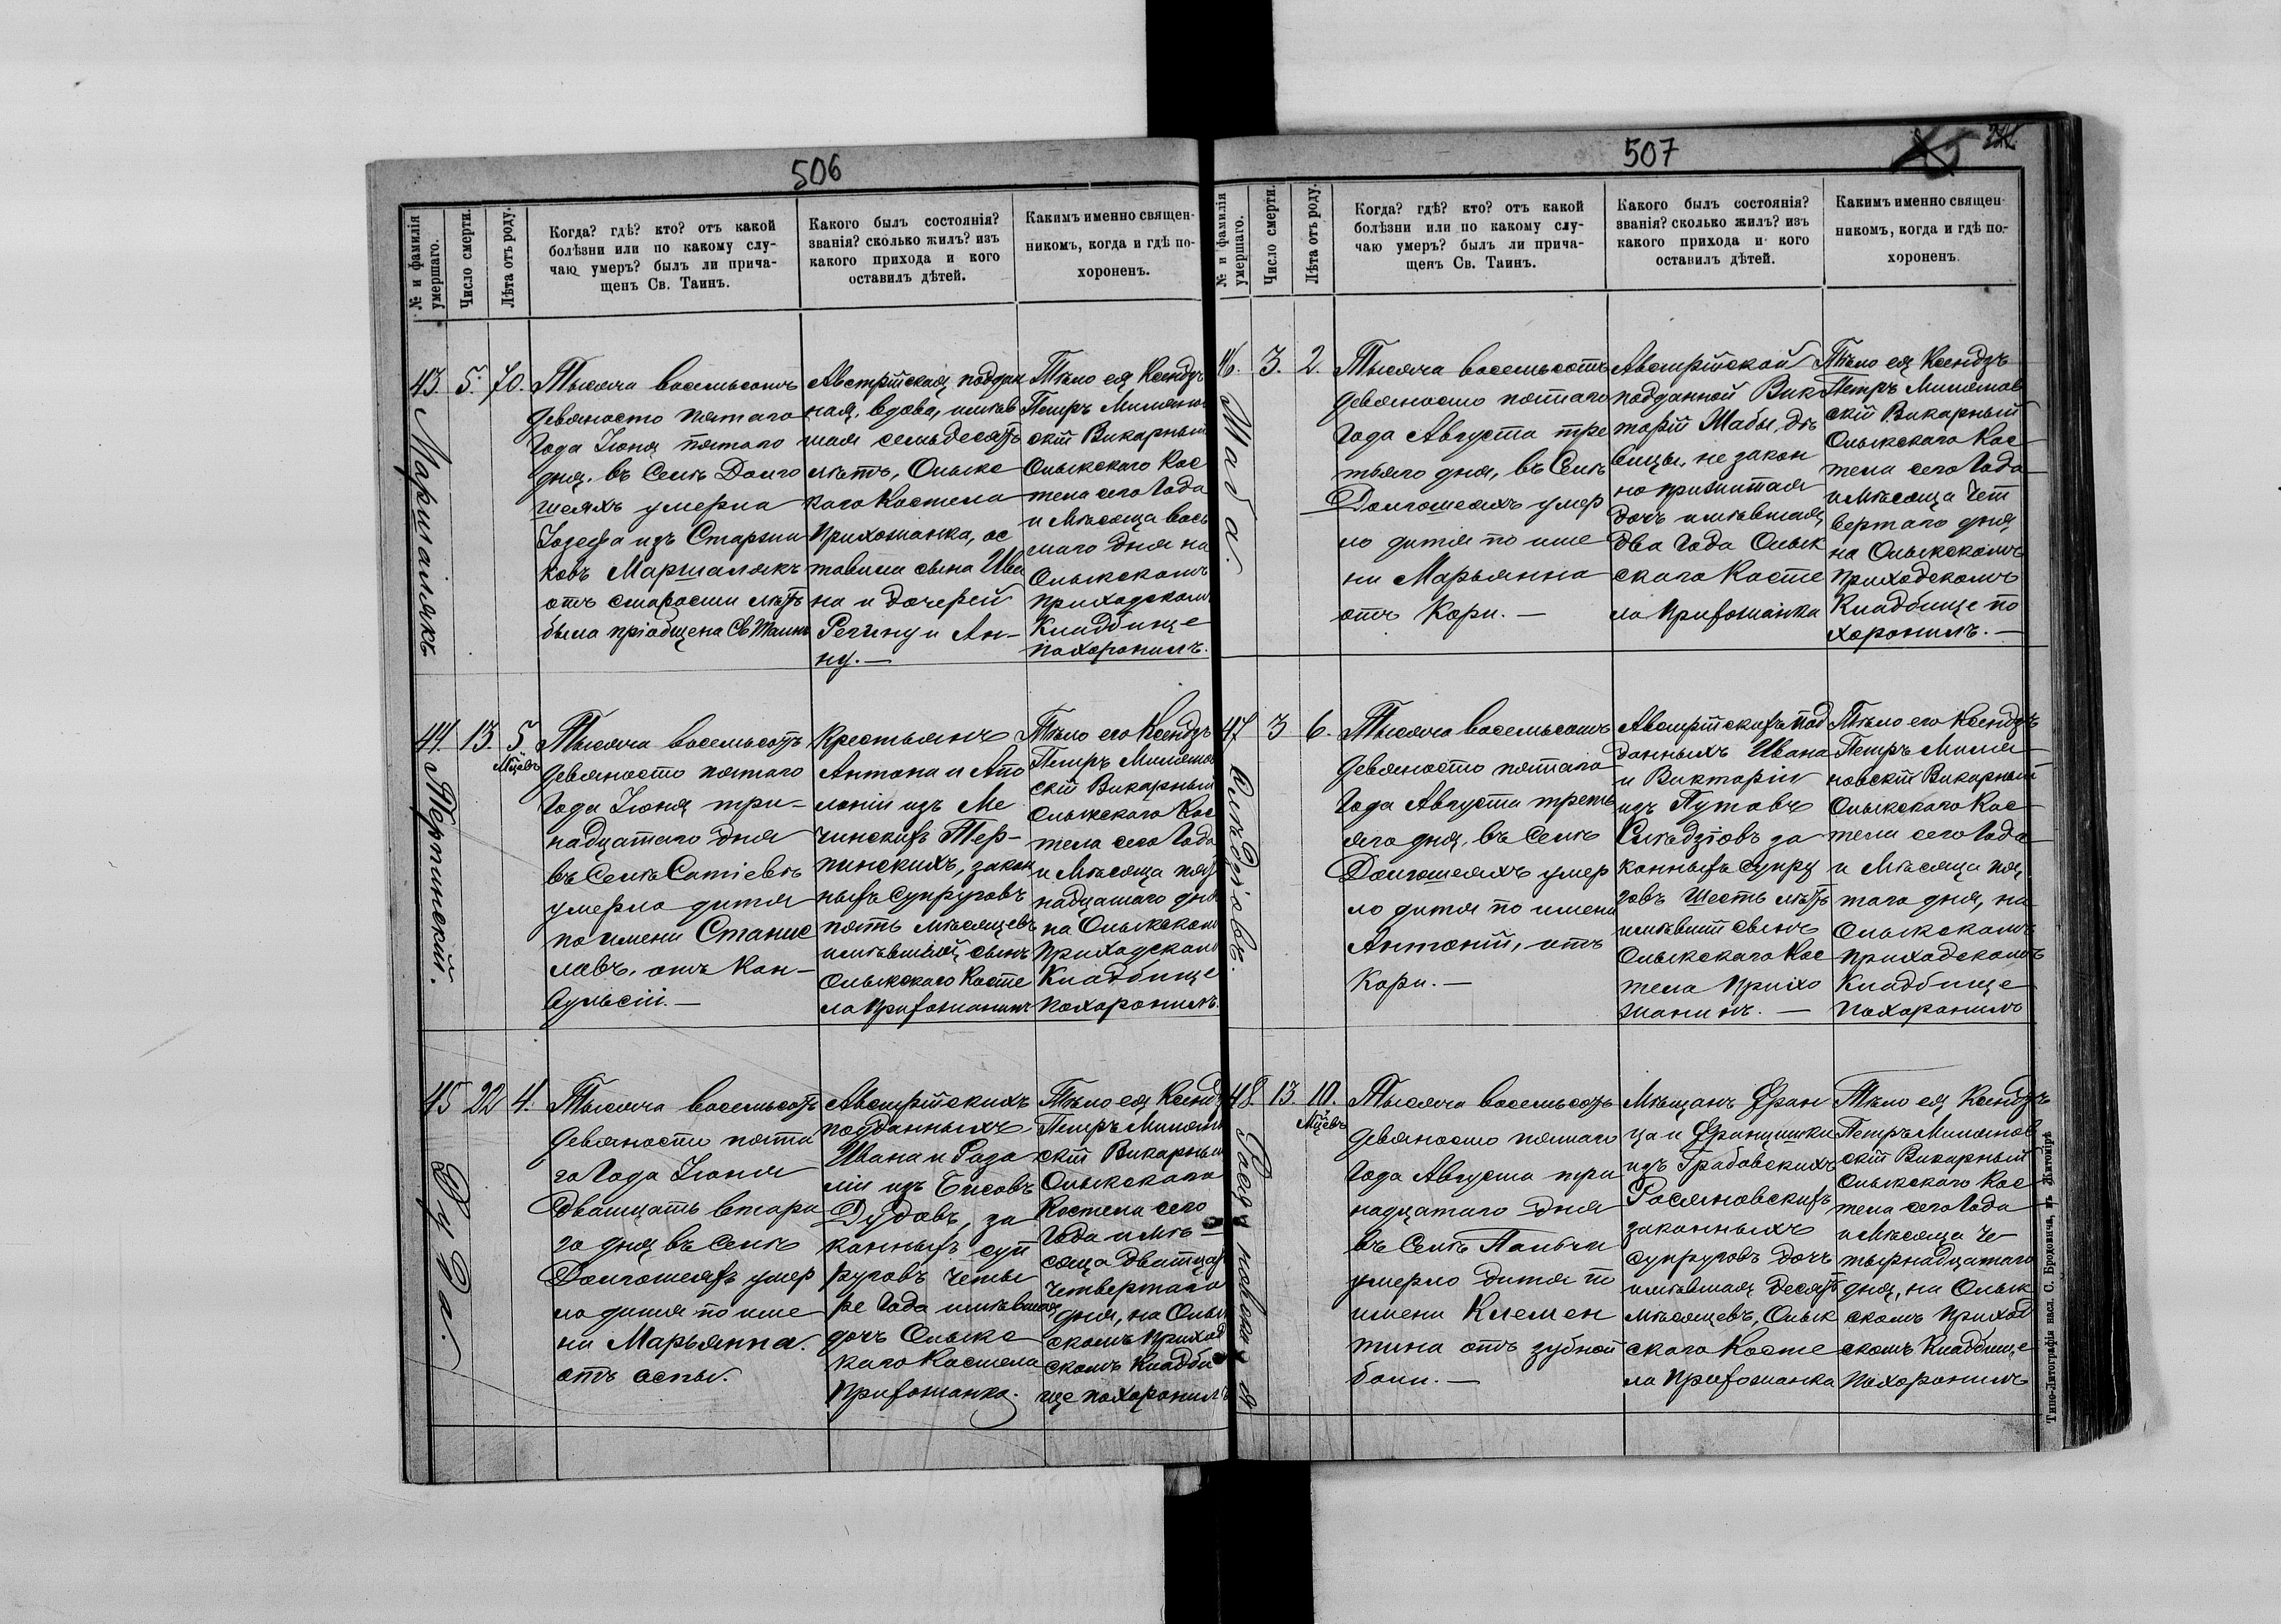 506
№ и фамилія
умершаго.
Число смерти.
Лѣта отъ роду.
Когда? гдѣ? кто? отъ какой
болѣзни или по какому слу-
чаю умеръ? былъ ли прича-
щенъ Св. Таинъ.
Какого былъ состоянія?
званія? сколько жилъ? изъ
какого прихода и кого
оставилъ дѣтей.
Какимъ именно священ-
никомъ, когда и гдѣ по-
хороненъ.
43.
Маршалякъ
5.
70.
Тысяча восемьсотъ
девяносто пятаго
Года Іюня пятаго
дня, въ Селѣ Долго
шеяхъ умерла
Іозефа изъ Старжи
ковъ Маршалякъ
отъ старости лѣтъ
была пріобщена Св Таинъ
Австрійская поддан
ная, вдова, имѣв
шая семьдесятъ
лѣтъ, Олыкс
каго Костела
Прихожанка, ос
тавила сына Ива
на и дочерей
Регину и Ан-
ну.—
Тѣло ея Ксендзъ
Петръ Милянов
скій Викарный
Олыкскаго Кос
тела сего Года
и Мѣсяца вось
маго дня на
Олыкскомъ
приходскомъ
Кладбище
похоронилъ.
44.
Терпинскій.
13.
5.
Мцевъ
Тысяча восемьсотъ
девяносто пятаго
Года Іюня три-
надцатаго дня
въ Селѣ Сатіевѣ
умерло дитя
по имени Станис
лавъ, отъ Кон-
вульсій.—
Крестьянъ
Антона и Апо
лоніи изъ Ме
чинскихъ Тер-
пинскихъ, закон
ныхъ Супруговъ
пять мѣсяцевъ
имѣвшій, сынъ
Олыкскаго Косте
ла прихожанинъ
Тѣло его Ксендзъ
Петръ Милянов
скій Викарный
Олыкскаго Кос
тела сего Года
и Мѣсяца пят
надцатаго дня
на Олыкскомъ
Приходскомъ
Кладбище
похоронилъ.
45
Дуда.
22
4.
Тысяча восемьсотъ
девяности пята
го Года Іюня
двадцать втора
го дня въ Селѣ
Долгошеяхъ умер
ло дитя по име
ни Марьянна.
отъ оспы.
Австрійскихъ
подданныхъ
Ивана и Роза
ліи изъ Бисовъ
Дудовъ, за
конныхъ суп
руговъ четы
ре Года имѣвшая
дочь Олыкс
каго Костела
прихожанка.
Тѣло ея Ксендзъ
Петръ Милянов
скій Викарный
Олыкскаго
Костела сего
Года и Мѣ-
сяца двадцать
четвертаго
дня, на Олык
скомъ приход
скомъ Кладби
ще похоронилъ
507
№ и фамилія
умершаго.
Число смерти.
Лѣта отъ роду.
Когда? гдѣ? кто? отъ какой
болѣзни или по какому слу-
чаю умеръ? былъ ли прича-
щенъ Св. Таинъ.
Какого былъ состоянія?
званія? сколько жилъ? изъ
какого прихода и кого
оставилъ дѣтей.
Какимъ именно священ-
никомъ, когда и гдѣ по-
хороненъ.
46.
Шаба.
3.
2.
Тысяча восемьсотъ
девяносто пятаго
Года Августа тре
тьяго дня, въ Селѣ
Долгошеяхъ умер
ло дитя по име
ни Марьянна
отъ Кори.—
Австрійской
подданной Вик
торіи Шабы, дѣ
вицы, не закон
но прижитая
дочь имѣвшая
два Года Олык
скаго Косте
ла прихожанка
Тѣло ея Ксендзъ
Петръ Милянов
скій Викарный
Олыкскаго Кос
тела сего Года
и Мѣсяца чет
вертаго дня
на Олыкскомъ
приходскомъ
Кладбище по
хоронилъ.—
47
Слѣдзіовъ.
3
6.
Тысяча восемьсотъ
девяносто пятаго
Года Августа треть
яго дня, въ Селѣ
Долгошеяхъ умер
ло дитя по имени
Антоній, отъ
Кори.—
Австрійскихъ под
данныхъ Ивана
и Викторіи
изъ Путовъ
Слѣдзіовъ за
конныхъ супру
говъ Шесть лѣтъ
имѣвшій сынъ
Олыкскаго Кос
тела прихо
жанинъ.—
Тѣло его Ксендзъ
Петръ Миля
новскій Викарный
Олыкскаго Кос
тела сего Года
и Мѣсяца пя
таго дня, на
Олыкскомъ
приходскомъ
Кладбище
похоронилъ
48.
13
10.
Мцевъ
Тысяча восемьсотъ
девяносто пятаго
Года Августа три
надцатаго дня
въ Селѣ Пальчи
умерло дитя по
имени Клемен
тина отъ зубной
боли.—
Мѣщанъ Фран
ца и Францишки
изъ Грабовскихъ
Росяновскихъ
законныхъ
супруговъ дочь
имѣвшая десять
мѣсяцевъ, Олык
скаго Косте
ла прихожанка
Тѣло ея Ксендзъ
Петръ Милянов
скій Викарный
Олыкскаго Кос
тела сего Года
и Мѣсяца че-
тырнадцатаго
дня, на Олык
скомъ приход
скомъ Кладбище
похоронилъ
Типо-Литографія насл. С. Бродовича, въ Житомірѣ